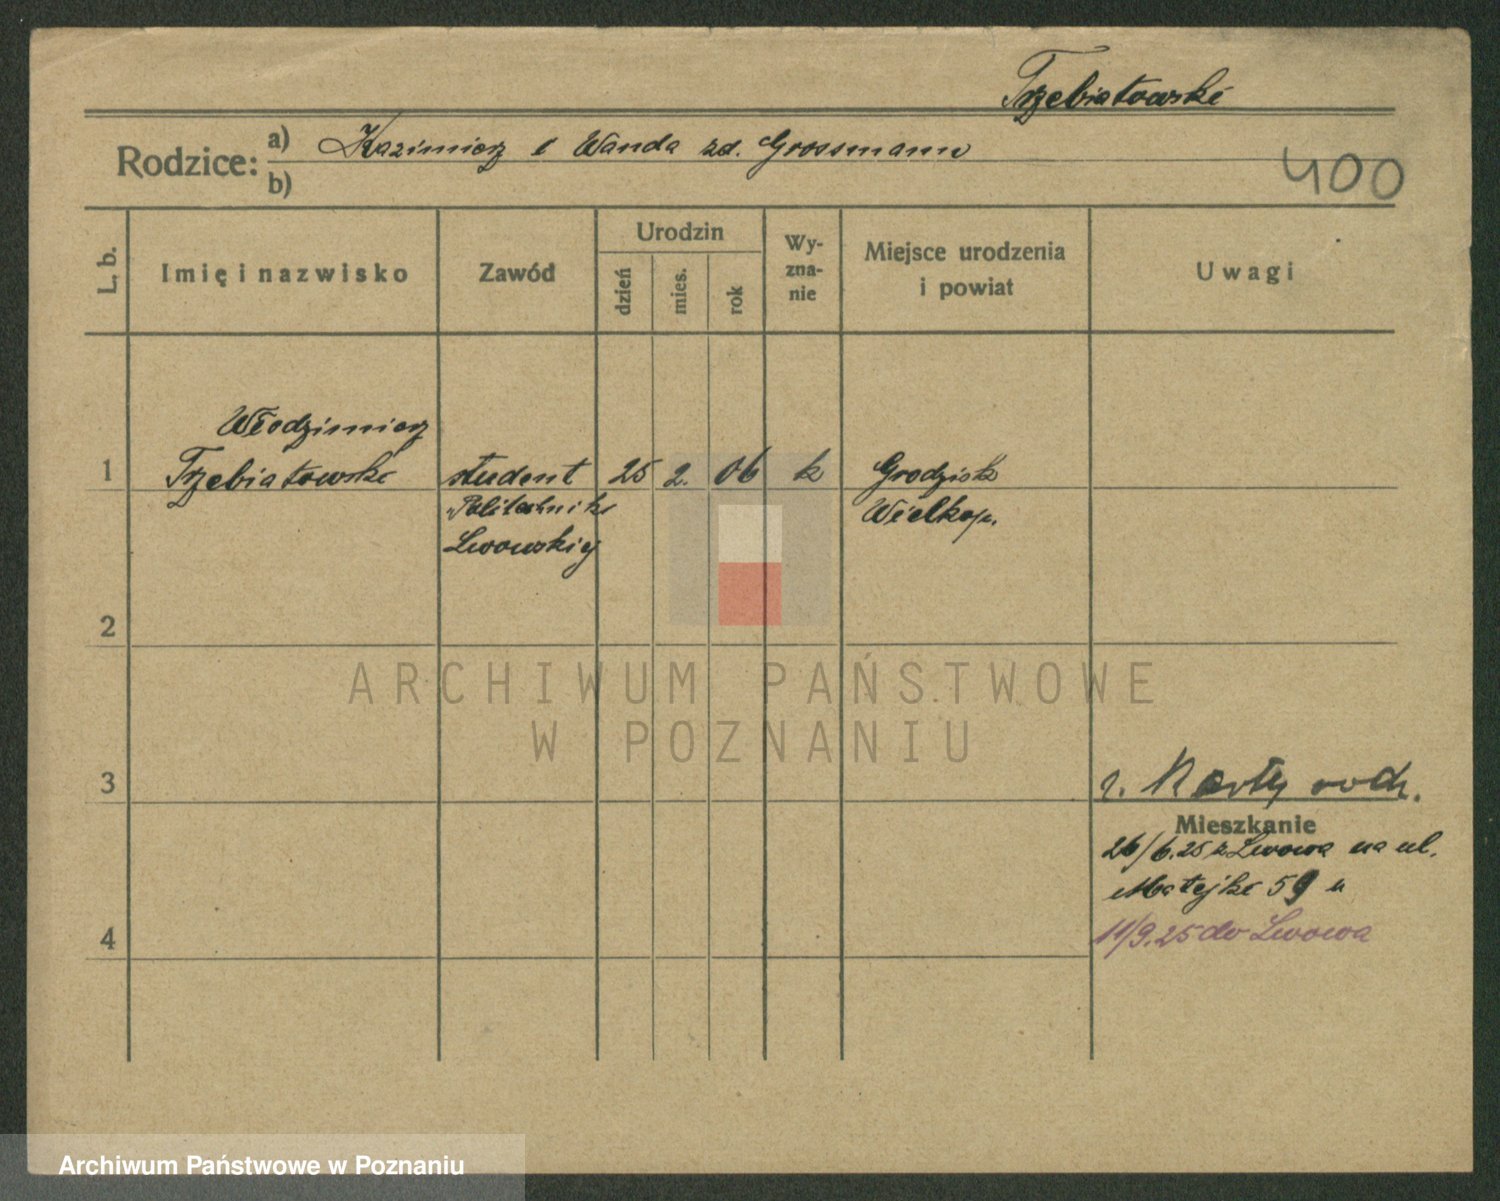 Trzebiatowski
Rodzice: a) Kazimierz i Wanda zd. Grossmann
b)
400
L. b.
Imię i nazwisko
Zawód
Urodzin
dzień
mies.
rok
Wy-
zna-
nie
Miejsce urodzenia
i powiat
Uwagi
Włodzimierz
1 Trzebiatowski student 25 2. 06 k Grodzisk
Politechniki Wielkop.
Lwowskiej
2
ARCHIWUM PAŃSTWOWE
W POZNANIU
3
z. Karty rodz.
Mieszkanie
26/6.25 z Lwowa na ul.
Matejki 59
4
11/9.25 do Lwowa
Archiwum Państwowe w Poznaniu